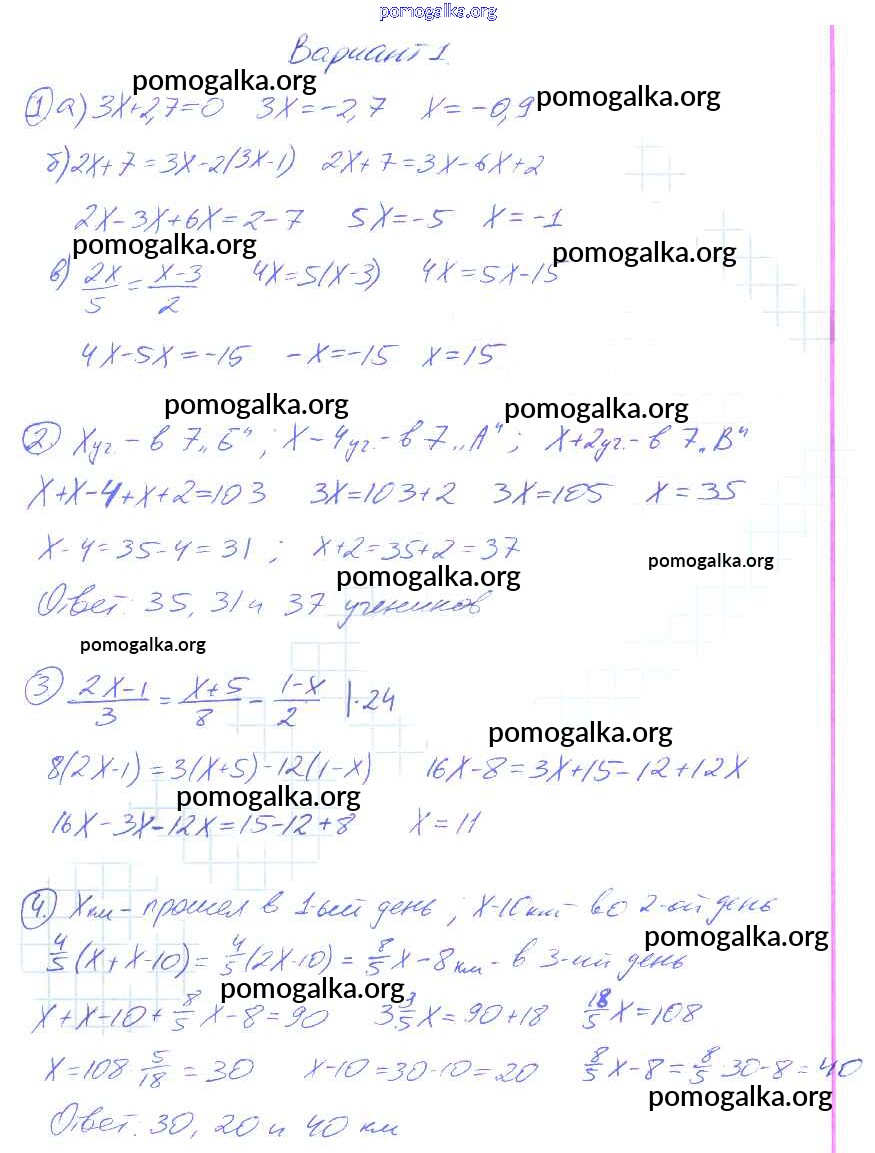 pomogalka.org
Вариант 1.
pomogalka.org
① а) 3x+2,7=0 3x=-2,7 x=-0,9 pomogalka.org
б) 2x+7=3x-2(3x-1) 2x+7=3x-6x+2
2x-3x+6x=2-7 5x=-5 x=-1
pomogalka.org pomogalka.org
в) 2x/5 = x-3/2 4x=5(x-3) 4x=5x-15
4x-5x=-15 -x=-15 x=15
pomogalka.org pomogalka.org
② x уч. - в 7 „Б“; x-4 уч. - в 7 „А“; x+2 уч. - в 7 „В“
x+x-4+x+2=103 3x=103+2 3x=105 x=35
x-4=35-4=31; x+2=35+2=37
pomogalka.org pomogalka.org
Ответ: 35, 31 и 37 учеников
pomogalka.org
③ 2x-1/3 = x+5/8 - 1-x/2 |·24
pomogalka.org
8(2x-1)=3(x+5)-12(1-x) 16x-8=3x+15-12+12x
pomogalka.org
16x-3x-12x=15-12+8 x=11
④ x км - прошел в 1-ый день; x-10 км - во 2-ой день
pomogalka.org
4/5(x+x-10)=4/5(2x-10)=8/5x-8 км - в 3-ий день
pomogalka.org
x+x-10+8/5x-8=90 3 3/5x=90+18 18/5x=108
x=108·5/18=30 x-10=30-10=20 8/5x-8=8/5·30-8=40
pomogalka.org
Ответ: 30, 20 и 40 км